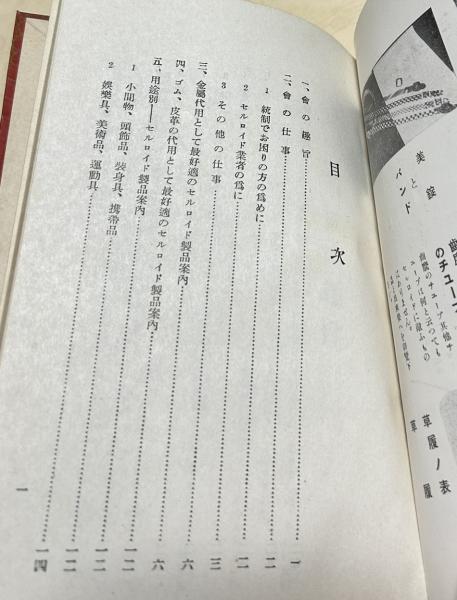 美錠
と
バンド
のチュー
ューブは何と云つても
はありません。
草履ノ表
草履
目次
一、會の趣旨……一
二、會の仕事……二
1 統制でお困りの方の爲めに……二
2 セルロイド業者の爲に……三
3 その他の仕事……六
三、金屬代用として最好適のセルロイド製品案內……六
四、ゴム、皮革の代用として最好適のセルロイド製品案內……一二
五、用途別――セルロイド製品案內……一二
1 小間物、頭飾品、裝身具、携帶品……一二
2 娛樂具、美術品、運動具……一四
一